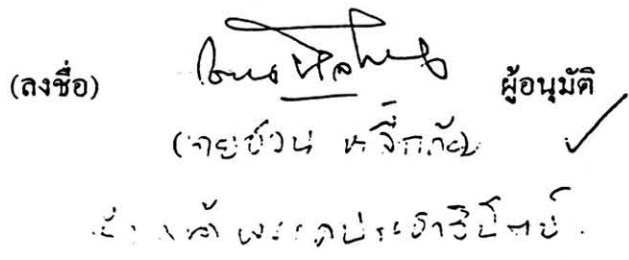 (ลงชื่อ) ผู้อนุมัติ
(นายชวน หลีกภัย)
หัวหน้าพรรคประชาธิปัตย์